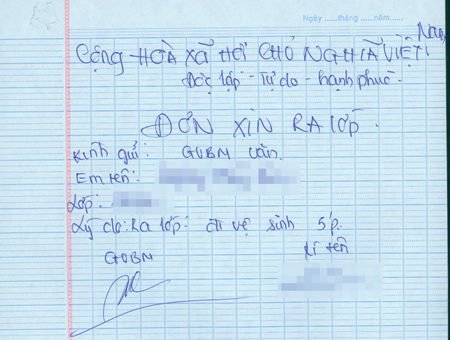 Ngày ......tháng ......năm......
CỘNG HOÀ XÃ HỘI CHỦ NGHĨA VIỆT Nam
Độc lập - Tự do - hạnh phúc.
ĐƠN XIN RA lớp.
Kính gửi: GVBM văn.
Em tên:
Lớp:
Lý do: Ra lớp: đi vệ sinh 5p.
GVBM
kí tên